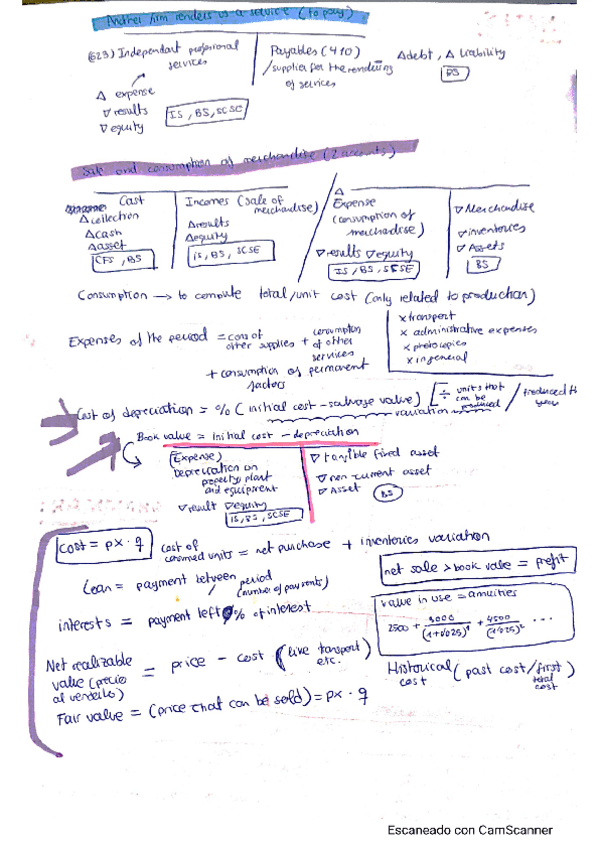 Another firm renders us a service (to pay)
(623) Independant professional services
Δ expense
▽ results
▽ equity
IS, BS, SCSE
Payables (410)
/supplier for the rendering of services
Δ debt, Δ liability
BS
Sale and consumption of merchandise (2 accounts)
Cash
Δ collection
Δ cash
Δ asset
CFS, BS
Incomes (sale of merchandise)
Δ results
Δ equity
IS, BS, SCSE
Δ
Expense
(consumption of merchandise)
▽ results ▽ equity
IS, BS, SCSE
▽ Merchandise
▽ inventories
▽ Assets
BS
Consumption → to compute total/unit cost (only related to production)
x transport
x administrative expenses
x photocopies
x in general
Expenses of the period = cons of other supplies + consumption of other services
+ consumption of permanent factors
Cost of depreciation = % (initial cost - salvage value) [÷ units that can be produced / produced th year
variation
Book value = initial cost - depreciation
(Expense)
Depreciation on property plant and equipment
▽ result ▽ equity
IS, BS, SCSE
▽ tangible fixed asset
▽ non current asset
▽ Asset
BS
cost = px · q
cost of consumed units = net purchase + inventories variation
net sale > book vale = profit
Loan = payment between / period (number of payments)
interests = payment left % of interest
value in use = anuities
2500 + 3000/(1+0'025)¹ + 4500/(1'025)² ...
Net realizable value (precio al venderlo) = price - cost (like transport etc.
Historical cost (past cost/first total cost)
Fair value = (price that can be sold) = px · q
Escaneado con CamScanner